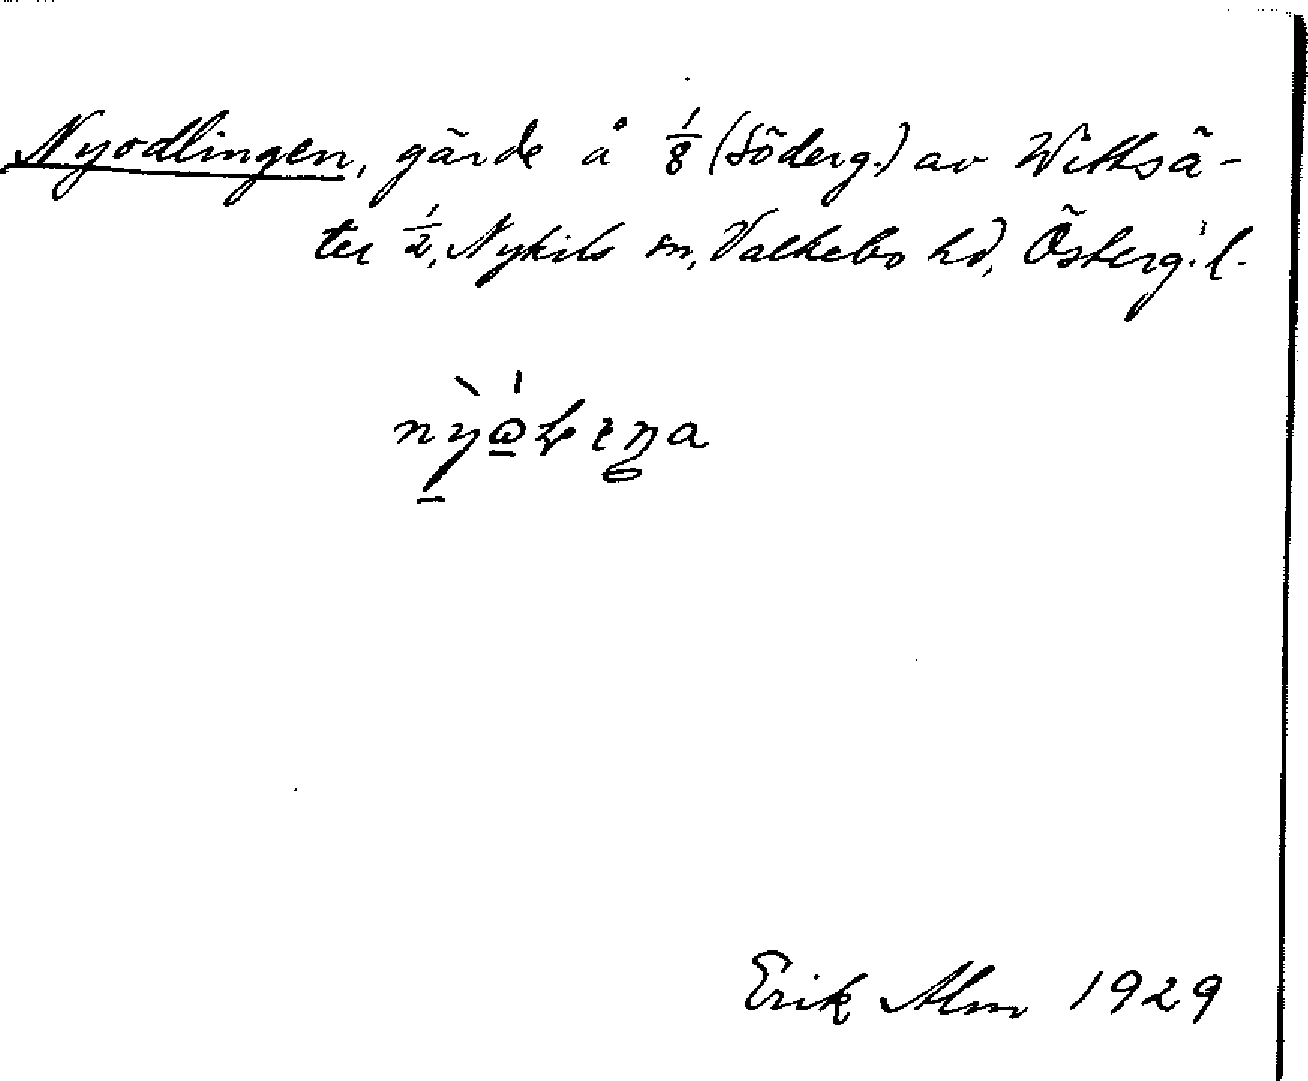 Nyodlingen, gärde å 1/8 (Söderg.) av Wittsä-
ter 1/2, Nykils sn, Valkebo hd, Österg:l.
Erik Alm 1929